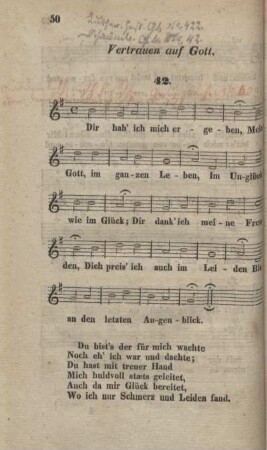 50
Vertrauen auf Gott.
42.
Dir hab' ich mich er - ge - ben, Mein
Gott, im gan-zen Le - ben, Im Unglück
wie im Glück; Dir dank' ich mei - ne Freu
den, Dich preis' ich auch im Lei - den Bis
an den letzten Au-gen-blick.
Du bist's der für mich wachte
Noch eh' ich war und dachte;
Du hast mit treuer Hand
Mich huldvoll stæts geleitet,
Auch da mir Glück bereitet,
Wo ich nur Schmerz und Leiden fand.